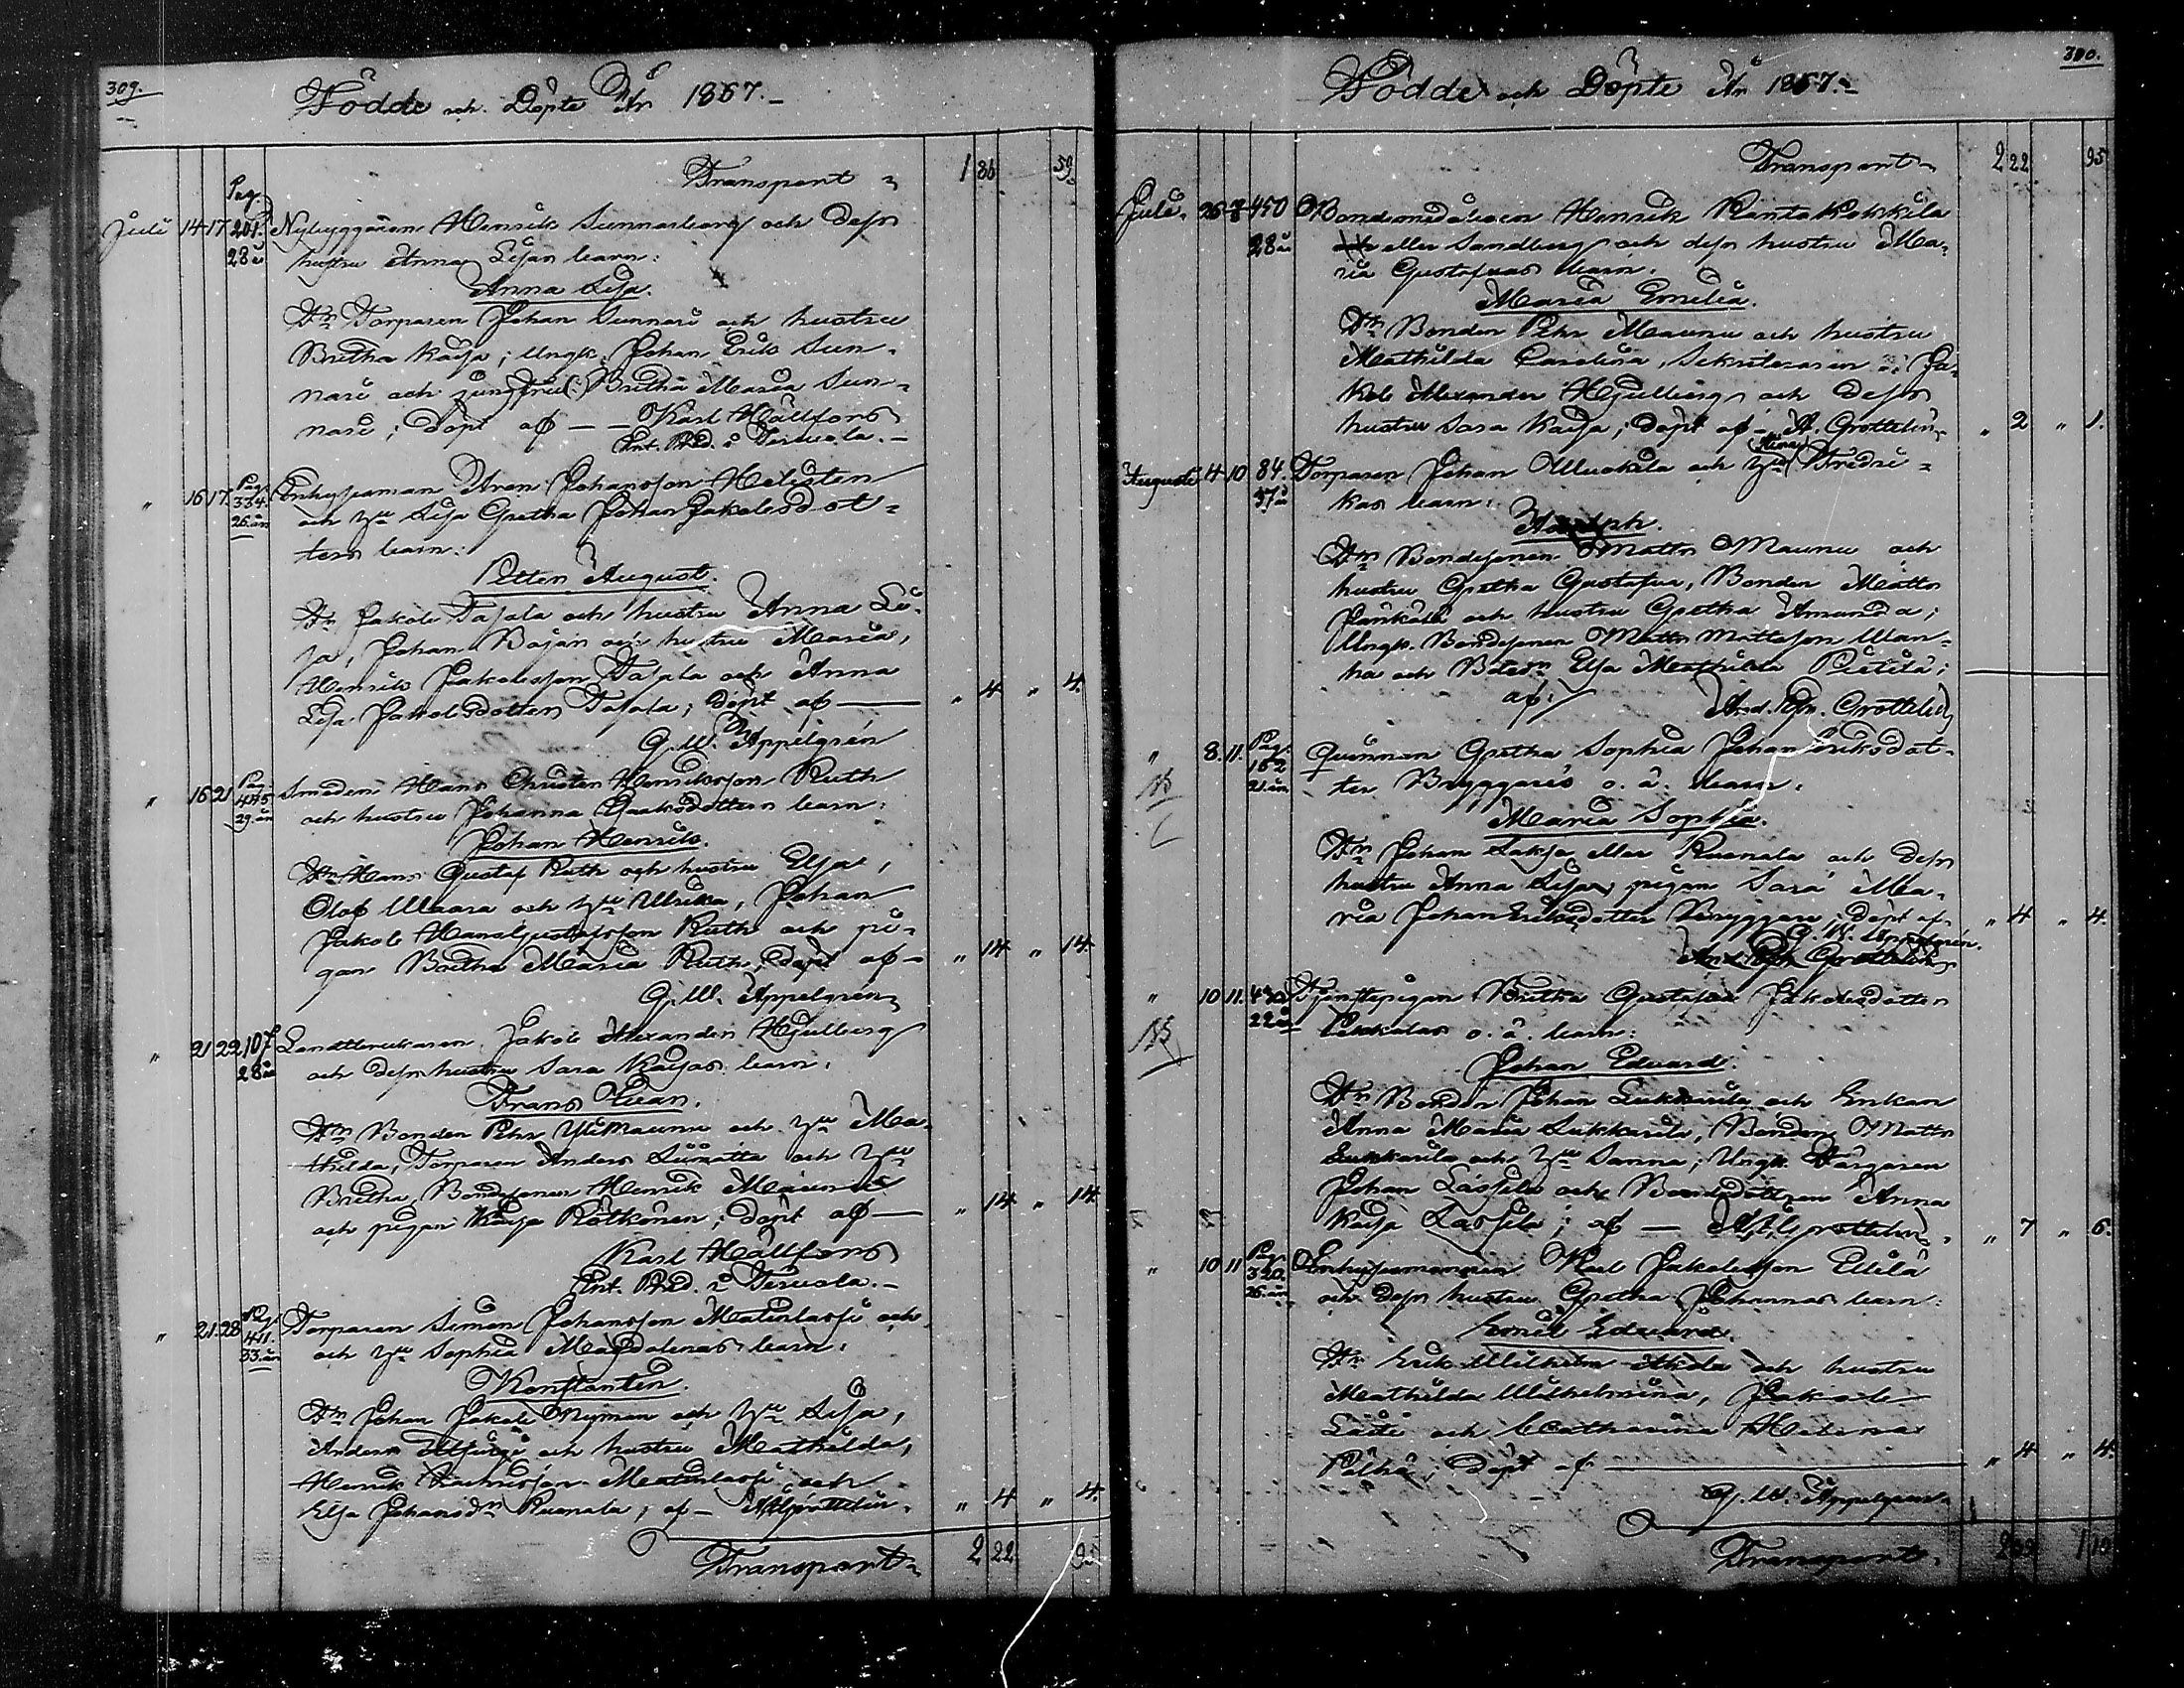 309.
Födde och Döpte År 1867.
Transport 1 86 59
Pag.
Juli 14 17 201. Nybyggaren Henrik Sunnarborg och dess
28 år hustru Anna Lisas barn:
Anna Lisa.
Torparen Johan Sunnari och hustru
Britha Kaisa; Ungk. Johan Erik Sun-
nari och jungfru Britha Maria Sun-
nari; döpt af Karl Hällfors
Past. Adj. i Tervola.
" 16 17 Pag. 334. Inhysesman Aron Johansson Helisten
26 år och Lisa Gretha Johan Jakobsdot-
ters barn:
Petter August.
Jakob Tapala och hustru Anna Li-
sa, Johan Bajari och hustru Maria,
Henrik Jakobsson Tapala och Anna
Lisa Jakobsdotter Tapala; döpt af " 4 " 4.
G. W. Appelgren
" 16 21 Pag. 445 Smeden Hans Christer Henriksson Ruth
29. år och hustru Johanna Isaksdotters barn:
Johan Henrik.
Hans Gustaf Ruth och hustru Elsa,
Olof Waara och Ulrika, Johan
Jakob Hansgustafsson Ruth och pi-
gan Britha Maria Ruth, döpt af " 14 " 14
G. W. Appelgren
" 21 22 107 Landtbrukaren Jakob Alexander Hjulberg
28 år och dess hustru Sara Kaisas barn:
Frans Evan.
Bonden Pehr Ylimaunu och Ma-
thilda, Torparen Anders Liimatta och
Britha, Bondesonen Henrik Maunu
och pigan Kaisa Rötkönen; döpt af " 14 " 14
Karl Hällfors
Past. Adj. i Tervola.
" 21 28 Pag. 411. Torparen Simon Johansson Matinlassi och
33. år och Sophia Magdalenas barn:
Konstantin.
Johan Jakob Nyman och Lisa,
Anders och hustru Mathilda,
Henrik Matinlassi och
Elsa Johansd. Ruonala; af A. Grottelin. " 4 " 4.
Transport 2 22 95
380.
Födde och Döpte År 1867.
Transport 2 22 95
Juli. 26 450 Bondemågen Henrik Rantakokkila
28 år eller Sandberg och dess hustru Ma-
ria Gustafvas barn.
Maria Emilia.
Bonden Pehr Maunu och hustru
Mathilda Carolina, Ja-
kob Alexander Hjulberg och dess
hustru Sara Kaisa; döpt af A. Grottelin " 2 " 1.
Augusti 4 10 84. Torparen Johan Alluokkila och (Stina) Fredri-
37 år kas barn:
Adolph.
Bondesonen Matts Maunu och
hustru Gretha Gustafva, Bonden Matts
Pankkala och hustru Gretha Amanda;
Ungk. Bondesonen Matts Mattsson Wan-
ha och Elsa Mathilda Pietilä;
af: And. Joh. Grottelin
" 8. 11. Pag. 162 Qvinnan Gretha Sophia Johan Eriksdot-
21. år ter Bryggaris o. ä. barn:
Maria Sophia.
Johan Laksja eller Ruonala och dess
hustru Anna Lisa; pigan Sara Ma-
ria Johan Eriksdotter Bryggari; döpt af " 4 " 4.
G. W. Appelgren.
" 10 11. Tjenstepigan Britha Gustafva Jakobsdotter
22 år Pekkalas o. ä. barn:
Johan Eduard.
Bonden Johan Liekkarila och Enkan
Anna Maria Lukkarila, Bonden Matts
Lukkarila och Sanna; Ungk. Färgaren
Johan Lassila och Bondedottren Anna
Kaisa Lassila; af A. J. Grottelin. " 7 " 6.
" 10 11 Pag. 320. Inhysesmannen Karl Jakobsson Ellilä
26. år och dess hustru Gretha Johannas barn:
Emil Edvard.
Erik Wilhelm Akola och hustru
Mathilda Wilhelmina, Jakob
Laiti och Catharina Helena
Palha; döpt af " 4 " 4.
G. W. Appelgren
Transport